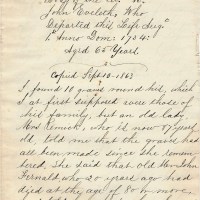 John Eveleth, Who
Departed this Life Aug
1st Anno Dom: 1734:
Aged 65 Years
2
Copied Sept 10 - 1863
I found 10 graves round his, which
I at first supposed were those of
his family, but an old lady
Mrs Remick, who is now 87 years
old, told me that the graves had
all been made since she remem
bered. She said that old Mr John
Fernald who 20 years ago had
died at the age of 80 or more